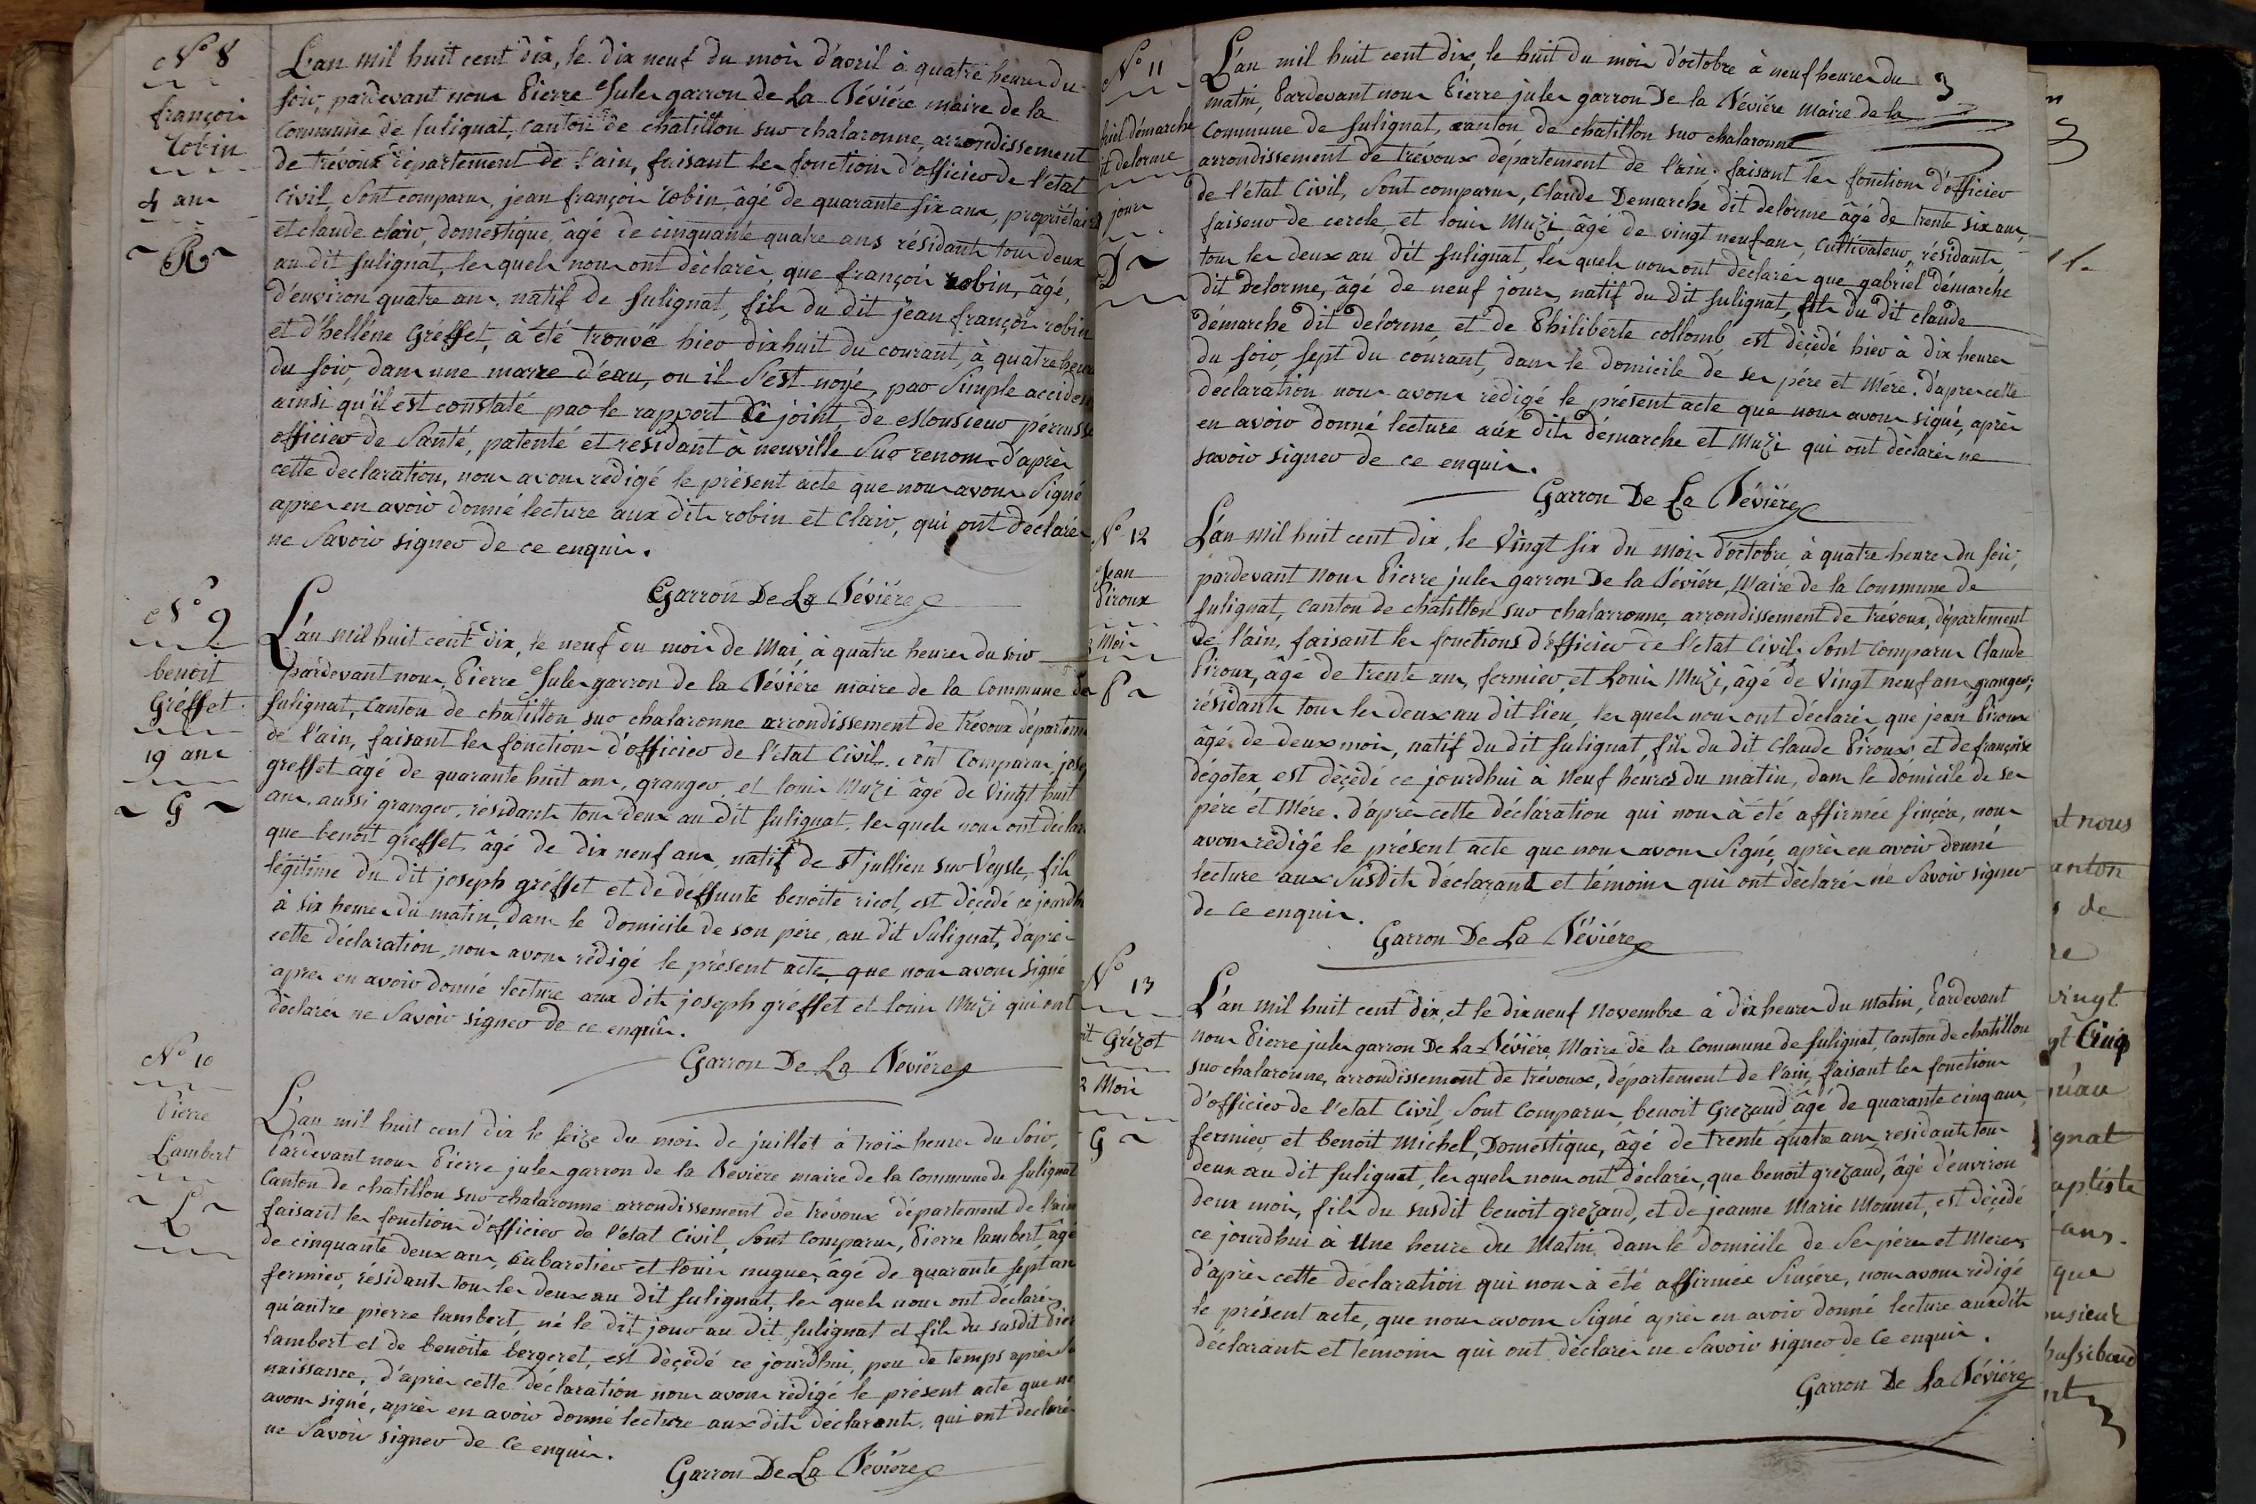 N° 8
françois
robin
4 ans
R
L'an mil huit cent dix, le dix neuf du mois d'avril à quatre heures du
soir, pardevant nous Pierre Jules garron de La Bévière maire de la
Commune de sulignat, canton de chatillon sur chalaronne, arrondissement
de trévoux département de l'ain, faisant les fonctions d'officier de l'état
civil, sont comparus, jean françois robin, âgé de quarante six ans, propriétaire
et claude clair, domestique, âgé de cinquante quatre ans résidants tous deux
au dit sulignat, les quels nous ont déclarés, que françois robin, âgé,
d'environ quatre ans, natif de sulignat, fils du dit jean françois robin
et d'hellène Gréffet, à été trouvé hier dixhuit du courant, à quatre heures
du soir, dans une marre d'eau, ou il s'est noyé, par simple accident
ainsi qu'il est constaté par le rapport ci joint, de Monsieur pérusse
officier de santé, patenté et residant à neuville sur renom d'après
cette declaration, nous avons redigé le présent acte que nous avons signé
apres en avoir donné lecture aux dits robin et clair, qui ont declarés
ne savoir signer de ce enquis.
Garron De La Bévière
N° 9
benoit
Gréffet
19 ans
G
L'an mil huit cent dix, le neuf du mois de Mai, à quatre heures du soir
pardevant nous, Pierre Jules garron de la Bévière maire de la Commune de
sulignat, canton de chatillon sur chalaronne arrondissement de trévoux départem
de l'ain, faisant les fonctions d'officier de l'état civil. sont Comparus jose
greffet âgé de quarante huit ans, granger, et louis Muzi âgé de vingt huit
ans, aussi granger, résidants tous deux au dit sulignat, les quels nous ont déclar
que benoit greffet, âgé de dix neuf ans natif de st jullien sur Veysle, fils
légitime du dit joseph gréffet et de déffunte benoite ricol, est dèçédé ce jourdh
à six heures du matin, dans le domicile de son père, au dit sulignat, d'après
cette déclaration, nous avons rédigé le présent acte, que nous avons signé
apres en avoir donné lecture aux dits joseph gréffet et louis Muzi qui ont
déclarés ne savoir signer de ce enquis.
Garron De La Bévière
N° 10
Pierre
Lambert
L
L'an mil huit cent dix le seize du mois de juillet à trois heures du soir,
Pardevant nous Pierre jules garron de la Bévière maire de la Commune de sulignat
Canton de chatillon sur chalaronne arrondissement de trévoux département de l'ain
faisant les fonctions d'officier de l'état civil, sont comparus, Pierre lambert, âgé
de cinquante deux ans, cabaretier et louis nugues, âgé de quarante sept ans
fermier, résidants tous les deux au dit sulignat, les quels nous ont declarés
qu'autre pierre lambert, né le dit jour au dit sulignat et fils du susdit Pier
lambert et de benoite bergeret, est dèçédé ce jourdhui, peu de temps après sa
naissance, d'après cette déclaration nous avons rédigé le présent acte que no
avons signé, après en avoir donné lecture aux dits déclarants qui ont declaré
ne savoir signer de ce enquis.
Garron De La Bévière
N° 11
briel démarche
it delorme
jours
D
L'an mil huit cent dix, le huit du mois d'octobre à neuf heures du
3
matin, Pardevant nous Pièrre jules garron De la Bévière Maire de la
Commune de sulignat, canton de chatillon sur chalaronne
arrondissement de trévoux département de l'ain. faisant les fonctions d'officier
de l'état civil, sont comparus, Claude Demarche dit delorme âgé de trente six ans,
faiseur de cercle, et louis Muzi âgé de vingt neuf ans, cultivateur, résidants
tous les deux au dit sulignat, les quels nous ont déclarés que gabriel démarche
dit Delorme, âgé de neuf jours, natif du dit sulignat, fils du dit claude
démarche dit delorme et de Philiberte collomb, est dèçédé hier à dix heures
du soir, sept du courant, dans le domicile de ses pére et Mére. d'après cette
declaration nous avons rédigé le présent acte que nous avons signé, après
en avoir donné lecture aux dits démarche et Muzi qui ont déclarés ne
savoir signer de ce enquis.
Garron De La Bévière
N° 12
Jean
Piroux
2 Mois
P
L'an mil huit cent dix, le vingt six du mois d'octobre à quatre heures du soir,
pardevant nous Pierre jules garron De la Bévière, Maire de la Commune de
sulignat, canton de chatillon sur chalarronne, arrondissement de trévoux, département
de l'ain, faisant les fonctions d'officier de l'etat civil. sont comparus Claude
Piroux, âgé de trente ans, fermier, et Louis Muzi, âgé de vingt neuf ans, granger,
résidants tous les deux au dit lieu, les quels nous ont déclarés que jean Piroux
âgé de deux mois, natif du dit sulignat, fils du dit claude Piroux et de françoise
dégotex, est dèçédé ce jourdhui à neuf héures du matin, dans le domicile de ses
pére et Mére. d'après cette déclaration qui nous à été affirmée sinçère, nous
avons rédigé le présent acte que nous avons signé, après en avoir donné
lecture aux susdits déclarant et témoins qui ont déclarés ne savoir signer
de ce enquis.
Garron De La Bévière
N° 13
it Grézot
2 Mois
G
L'an mil huit cent dix, et le dixneuf Novembre à dix heures du matin, Pardevant
nous Pierre jules garron De La Bévière, Maire de la Commune de sulignat, canton de chatillon
sur chalaronne, arrondissement de trévoux, département de l'ain, faisant les fonctions
d'officier de l'état civil sont comparus, benoit Grezaud âgé de quarante cinq ans,
fermier, et benoit Michel, Domestique, âgé de trente quatre ans, residants tous
deux au dit sulignat, les quels nous ont déclarés, que benoit grezaud, âgé d'environ
deux mois, fils du susdit benoit grezaud, et de jeanne Marie Monnet, est dèçédé
ce jourdhui à Une heure du Matin, dans le domicile de ses péres et Meres,
d'après cette déclaration qui nous à été affirmée Sinçére, nous avons rédigé
le présent acte, que nous avons signé après en avoir donné lecture aux dits
déclarants et temoins qui ont déclarés ne savoir signer de ce enquis.
Garron De La Bévière
nt nous
anton
s de
re
vingt
gt Cinq
qu'au
ignat
aptiste
ans.
que
nsieur